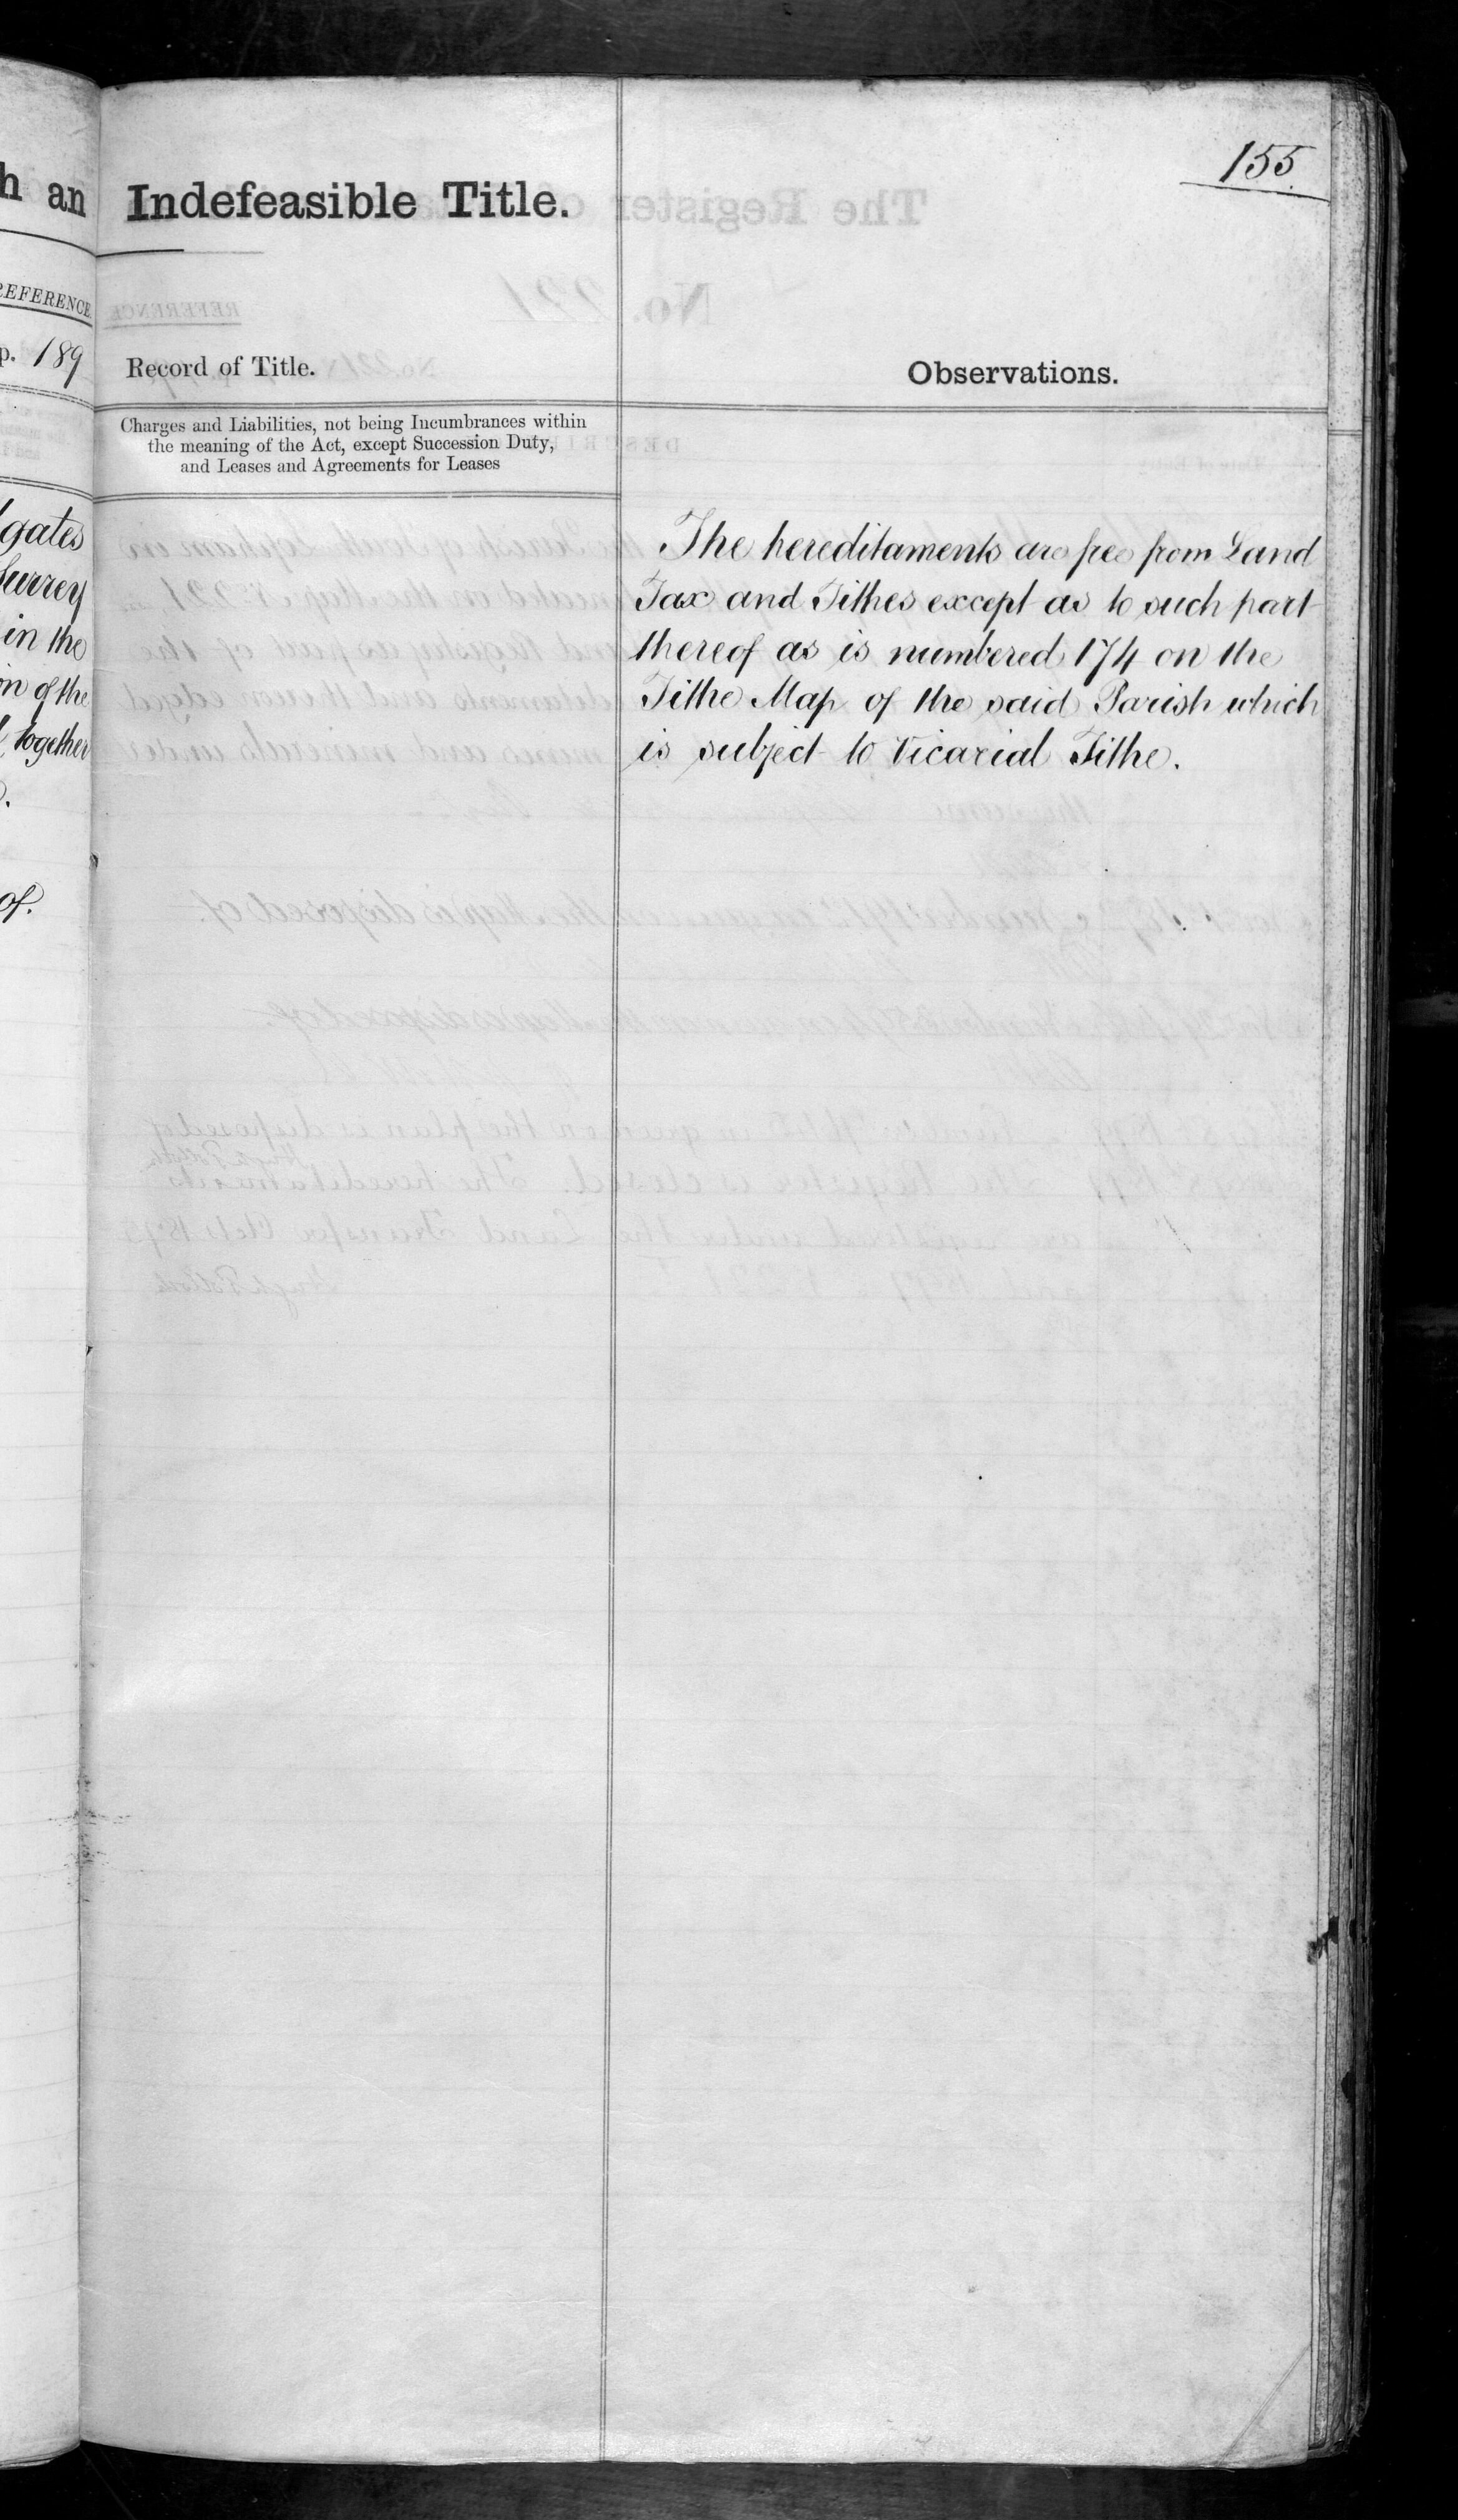 155
h an
Indefeasible Title.
REFERENCE
p. 189
Record of Title.
Observations.
Charges and Liabilities, not being Incumbrances within
the meaning of the Act, except Succession Duty,
and Leases and Agreements for Leases
gates
Surrey
in the
on of the
together
of.
The hereditaments are free from Land
Tax and Tithes except as to such part
thereof as is numbered 174 on the
Tithe Map of the said Parish which
is subject to Vicarial Tithe.